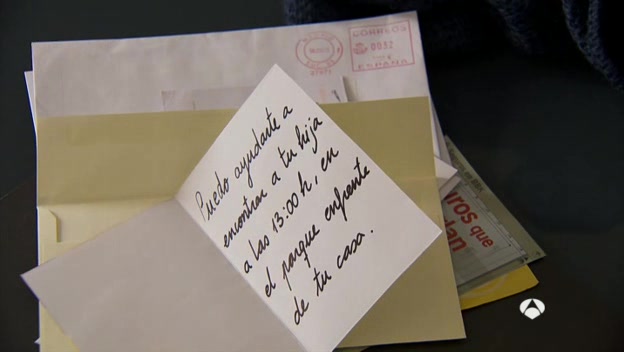 CORREOS
0032
ESPAÑA
Puedo ayudarte a
encontrar a tu hija
a las 13:00 h, en
el parque enfrente
de tu casa.
que